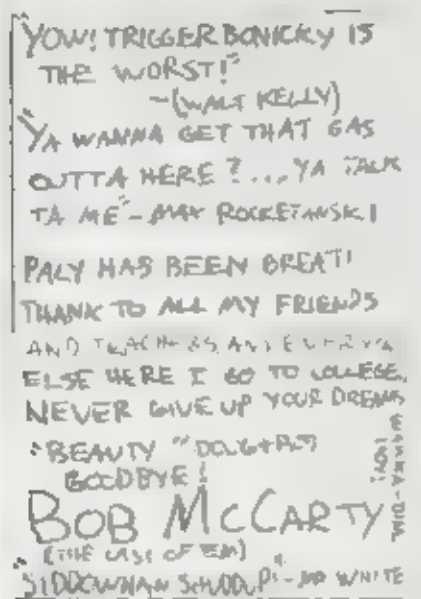 "YOW! TRIGGER BONICKY IS
THE WORST!"
-(WALT KELLY)
"YA WANNA GET THAT GAS
OUTTA HERE?...YA TALK
TA ME"-MAX ROCKETANSKI
PALY HAS BEEN GREAT!
THANK TO ALL MY FRIENDS
AND TEACHERS AND
ELSE HERE I GO TO COLLEGE.
NEVER GIVE UP YOUR DREAMS
"BEAUTY"
GOODBYE!
BOB MCCARTY
(THE LAST OF EM)
WHITE